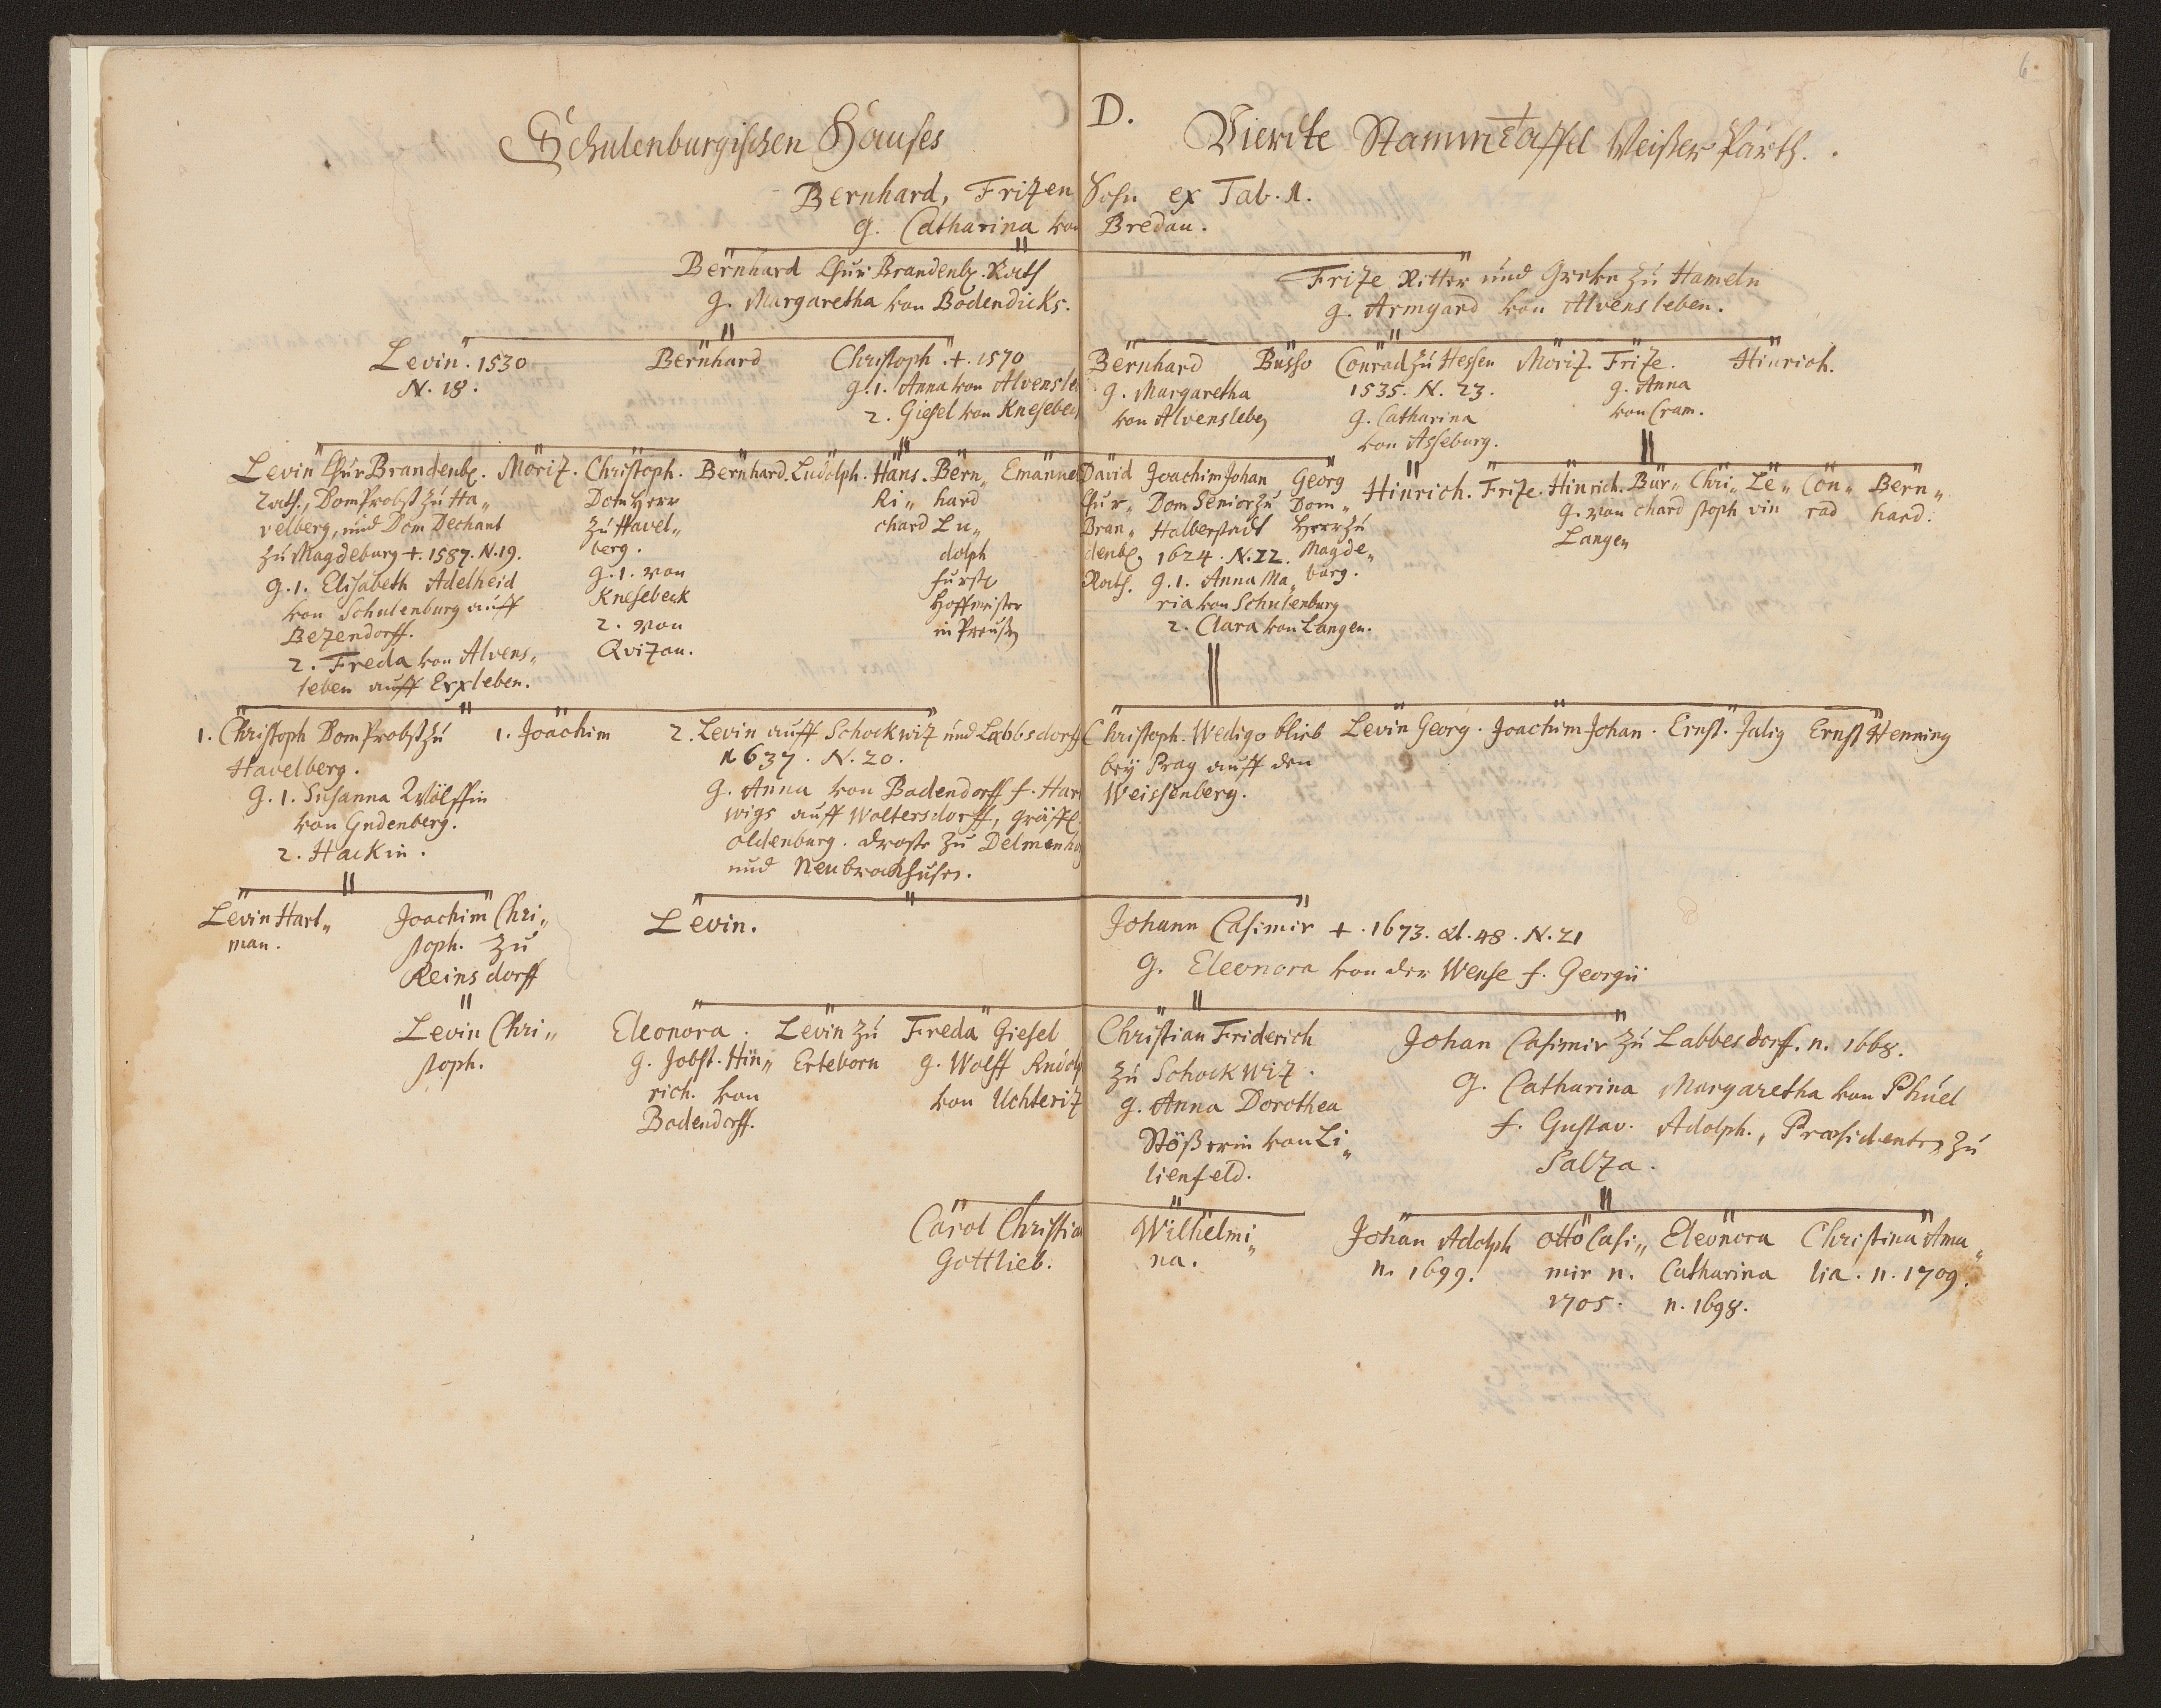 6.
D.
Schulenburgischen Hauses Vierdte Stamm Taffel Weißer Parth.
Bernhard, Fritzen Sohn ex Tab. 1.
g. Catharina von Bredau.
Bernhard Chur Brandenb. Rath
g. Margaretha von Bodendicks.
Fritze Ritter und Grebe zu Hameln
g. Armgard von Alvensleben.
Levin. 1530
N. 18.
Bernhard
Christoph. +. 1570
g. 1. Anna von Alvensle
2. Giesel von Knesebec
Bernhard
g. Margaretha
von Alvensleben
Busso
Conrad zu Hessen
1535. N. 23.
g. Catharina
von Asseburg.
Moritz.
Fritze.
g. Anna
von Cram.
Hinrich.
Levin Chur Brandenb.
Rath, Dom Probst zu Ha„
velberg, und Dom Dechant
zu Magdeburg +. 1587. N. 19.
g. 1. Elisabeth Adelheid
von Schulenburg auff
Betzendorff.
2. Freda von Alvens„
leben auff Erxleben.
Moritz.
Christoph.
Dom Herr
zu Havel„
berg.
g. 1. von
Knesebeck
2. von
Qvitzau.
Bernhard.
Ludolph.
Hans.
Ri„
chard
Bern„
hard
Lu„
dolph
fürstl
Hoffmeister
in Preußen
Emanuel
David
Chur„
Bran„
denb.
Rath.
Joachim Johan
Dom Senior zu
Halberstadt
1624. N. 22.
g. 1. Anna Ma„
ria von Schulenburg
2. Clara von Langen.
Georg
Dom„
Herr zu
Magde„
burg.
Hinrich.
Fritze.
Hinrich.
g. von
Langen
Bur„
chard
Chri„
stoph
Le„
vin
Con„
rad
Bern„
hard.
1. Christoph Dom Probst zu
Havelberg.
g. 1. Susanna Wölffin
von Gudenberg.
2. Hackin.
1. Joachim
2. Levin auff Schockwitz und Labbsdorff
1637. N. 20.
g. Anna von Bodendorff f. Hart
wigs auff Woltersdorff, Gräffl.
Oldenburg. Droste zu Delmenho
und Neubrockhusen.
Christoph. Wedigo blieb
bey Prag auff den
Weissenberg.
Levin Georg.
Joachim Johan.
Ernst. Julig
Ernst Henning
Levin Hart„
man.
Joachim Chri„
stoph. zu
Reinsdorff
Levin.
Johann Casimir +. 1673. æt. 48. N. 21
g. Eleonora von der Wense f. Georgii
Levin Chri„
stoph.
Eleonora.
g. Jobst. Hin„
rich. von
Bodendorff.
Levin zu
Erteborn
Freda Giesel
g. Wolff Rudolp
von Uchteritz
Christian Friderich
zu Schockwitz.
g. Anna Dorothea
Stößerin von Li„
lienfeld.
Johan Casimir zu Labbesdorff. n. 1668.
g. Catharina Margaretha von Phuel
f. Gustav. Adolph., Præsidenten zu
Saltza.
Carol Christia
Gottlieb.
Wilhelmi„
na.
Johan Adolph
n. 1699.
Otto Casi„
mir n.
1705.
Eleonora
Catharina
n. 1698.
Christina Ama„
lia. n. 1709.